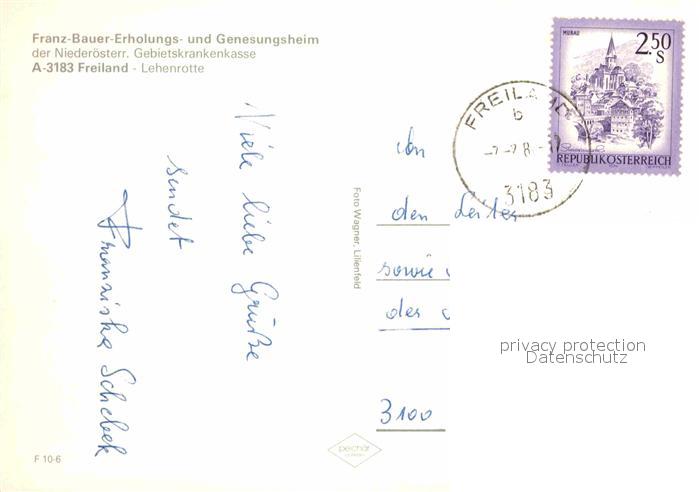 Franz-Bauer-Erholungs- und Genesungsheim
der Niederösterr. Gebietskrankenkasse
A-3183 Freiland - Lehenrotte
Viele liebe Grüße
sendet
Franziska Schebek
F 10-6
Foto Wagner, Lilienfeld
pechár
MURAU
2.50
S
REPUBLIK ÖSTERREICH
FREILAND
b
3183
An
den Leiter
sowie
des
3100
privacy protection
Datenschutz